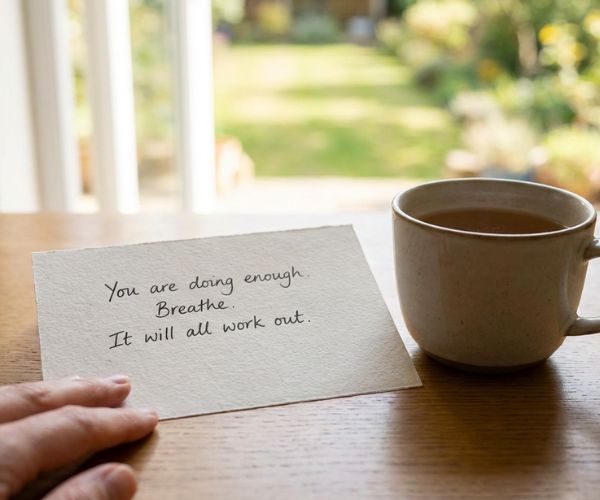 You are doing enough.
Breathe.
It will all work out.